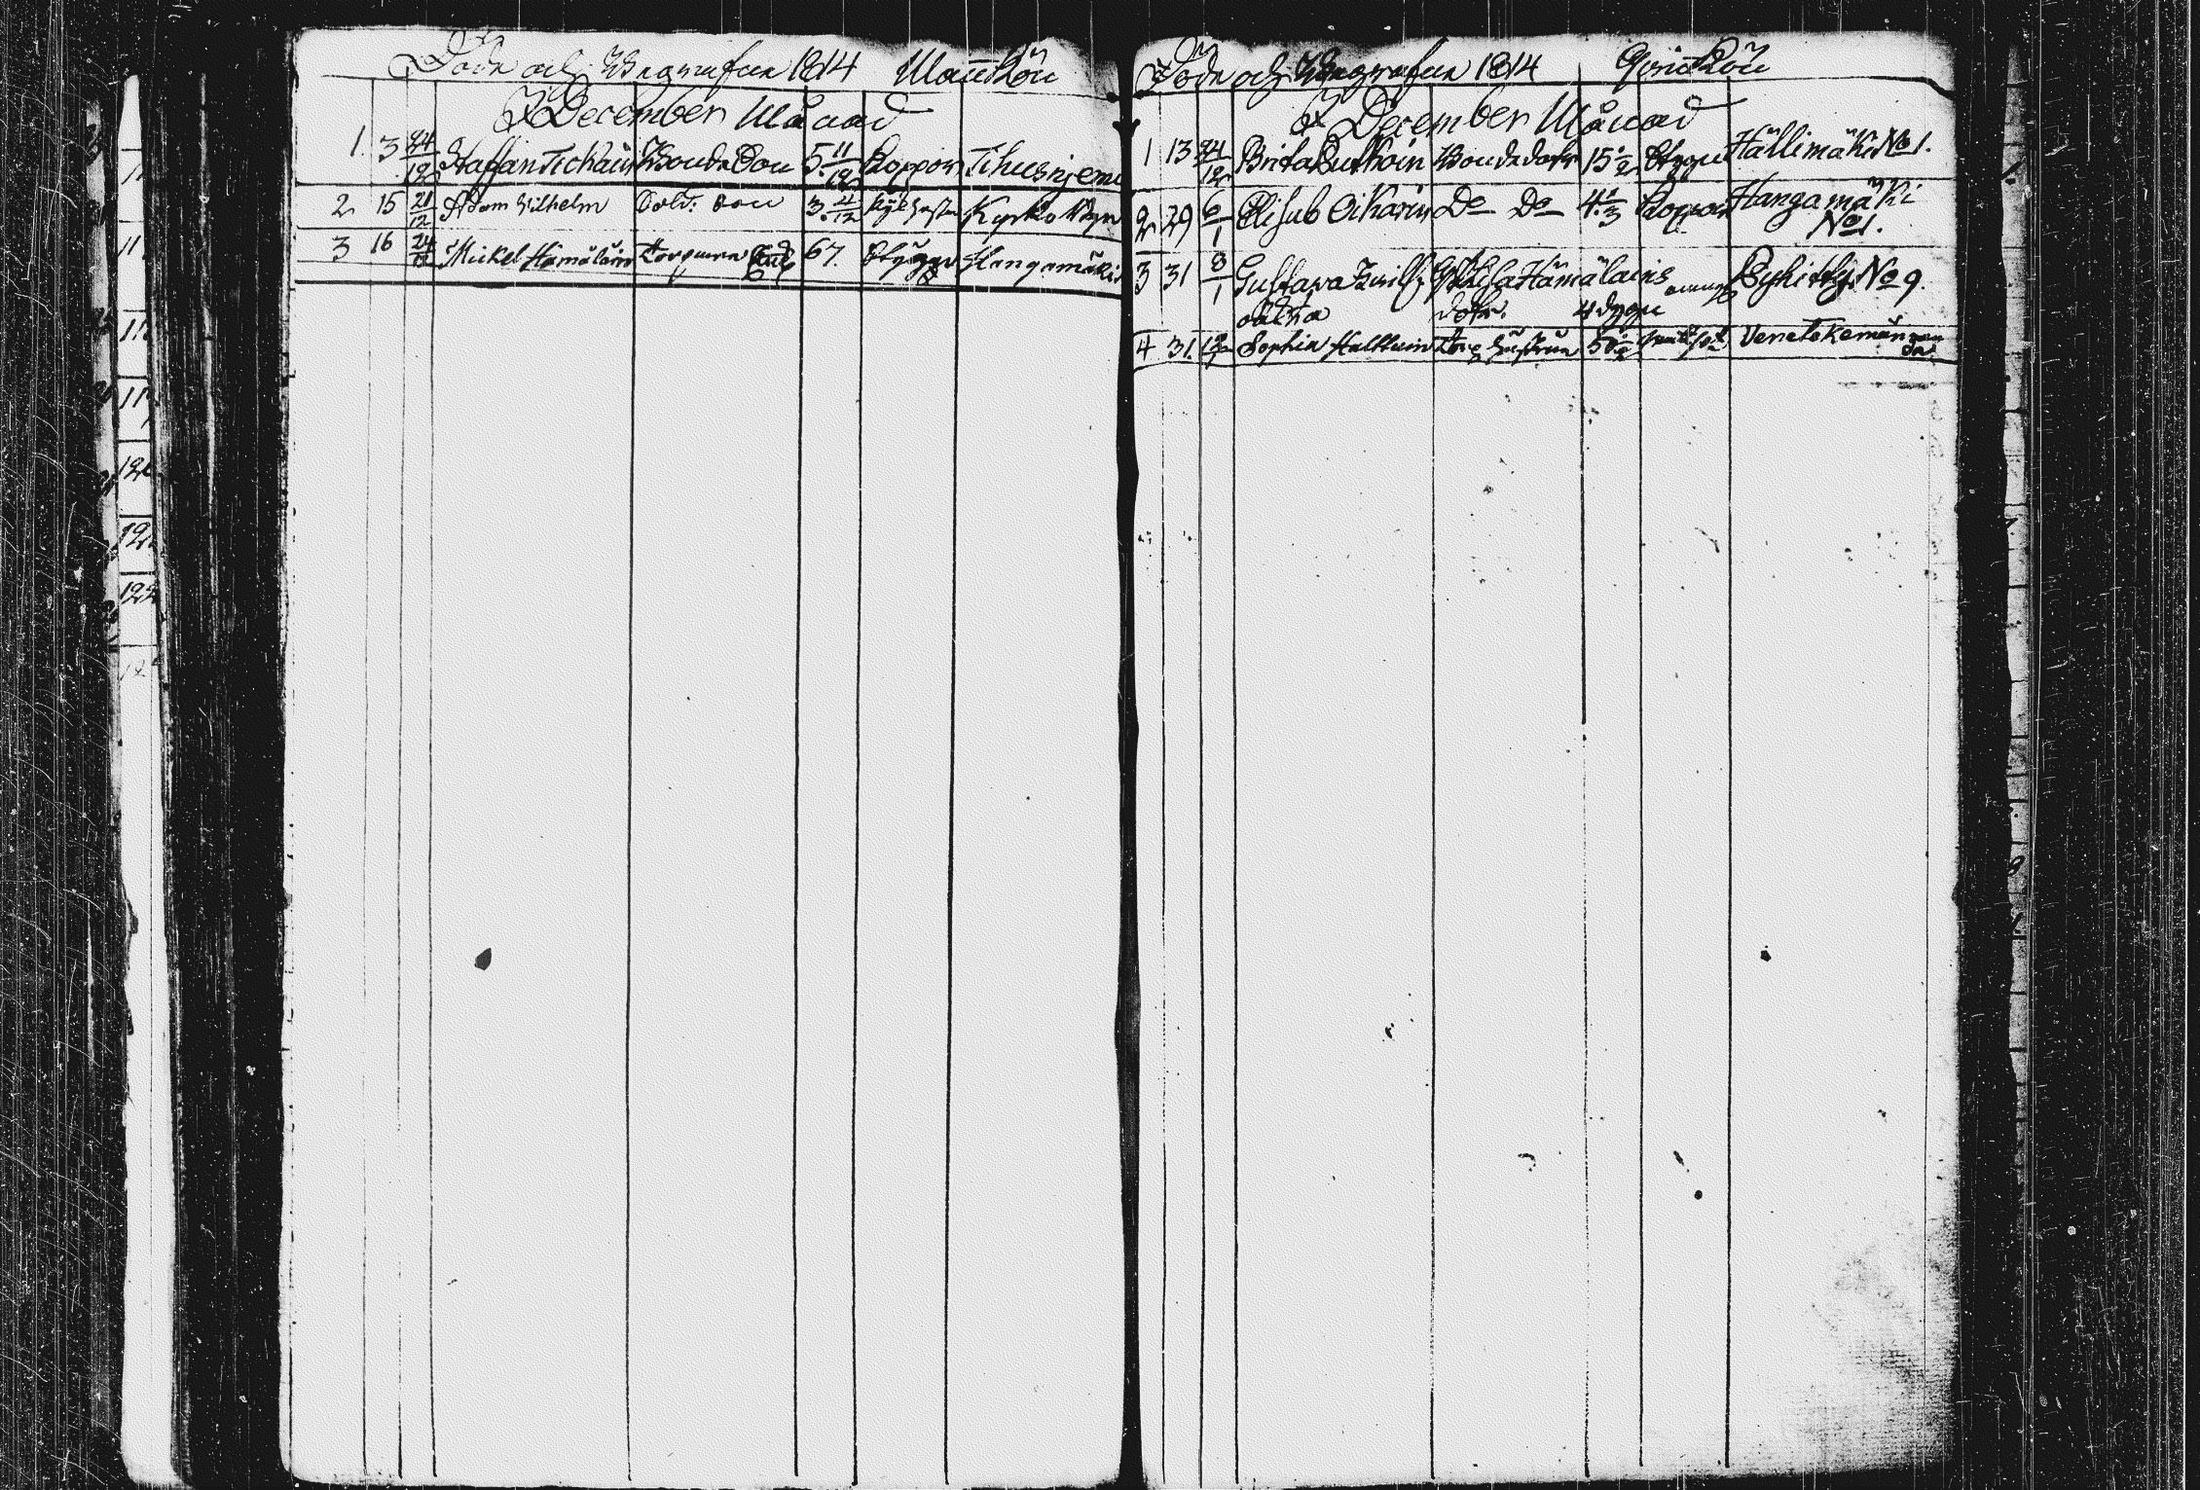 Döde och Begrafne 1814 Mankön
I December Månad
1. 3 24/12 Staffan Tickain Bonde Son 5 11/12 Koppor Tihusnjemi
2 15 21/12 Adam Wilhelm Sold: Son 3. 4/12 Kyrko Byn
3 16 24/12 Mickel Hämäläin Torpare 67. Stygn Hangamäki
Döde och Begrafne 1814 Qvinkön
I December Månad
1 13 24/12 Brita Bonde dotr 15 1/2 Stygn Hällimäki No 1.
2 29 6/1 Elisab Oikarin Do Do 4 1/3 Koppor Hangamäki
No 1.
3 31 8/1 Gustava Hämäläins Pyhitty No 9.
oäkta dotr. 4 dygn
4 31. Sophia Torp hustru 50 Venetekemä